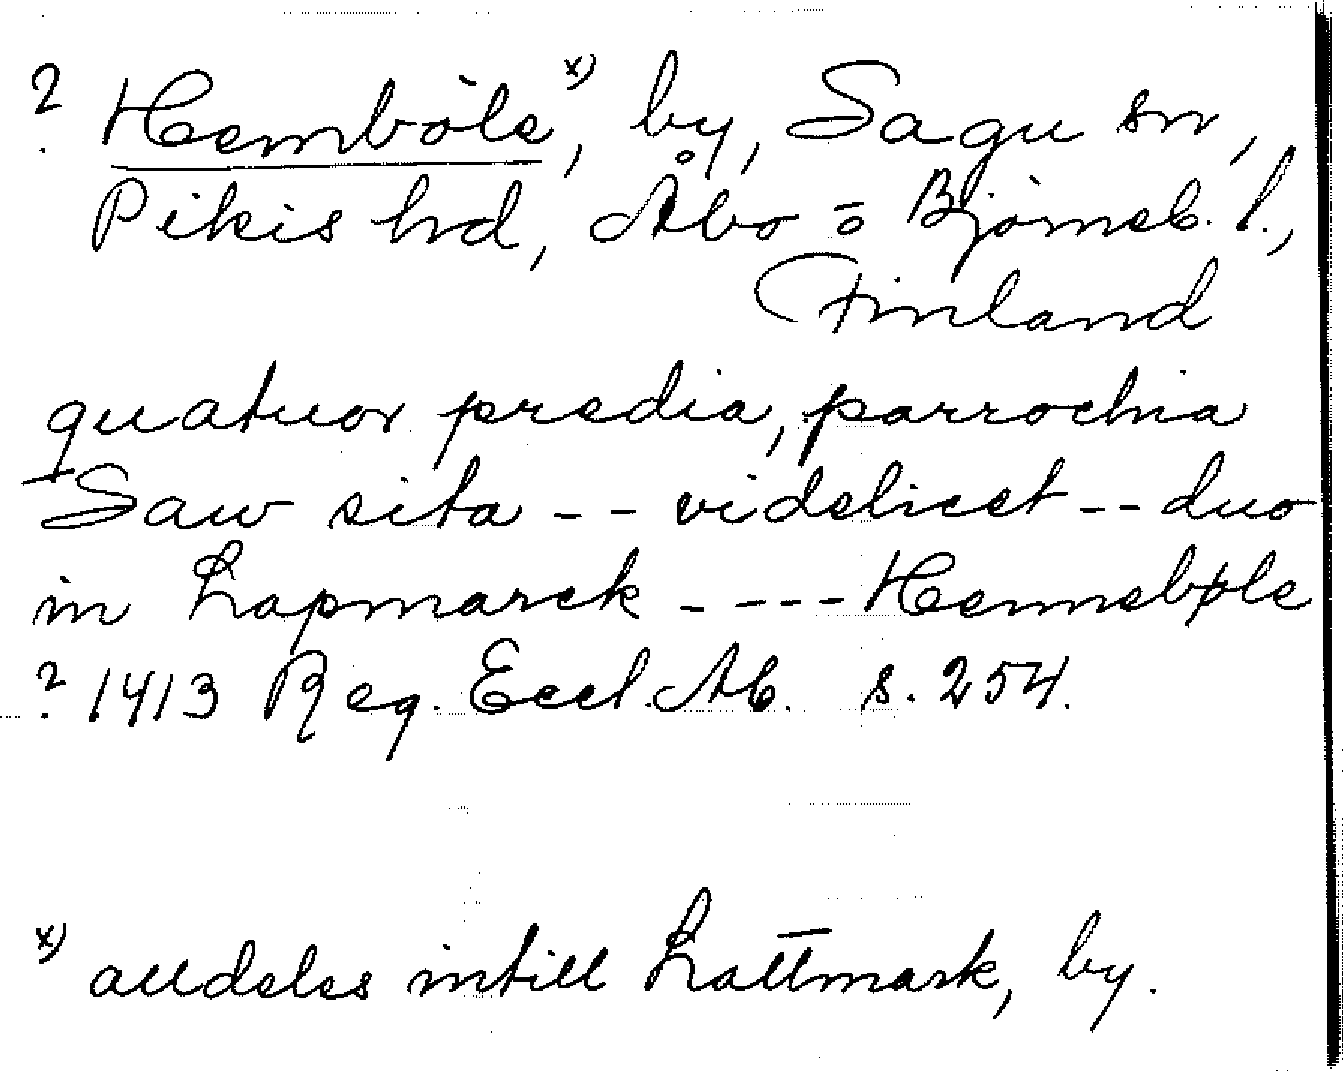 ? Hemböle x), by, Sagu sn,
Pikis hd, Åbo = Björneb. l.,
Finland
quatuor predia, parrochia
Saw sita -- videlicet -- duo
in Lapmarck ---- Hennebøle
? 1413 Reg. Eccl. Ab. s. 254.
x) alldeles intill Lattmark, by.